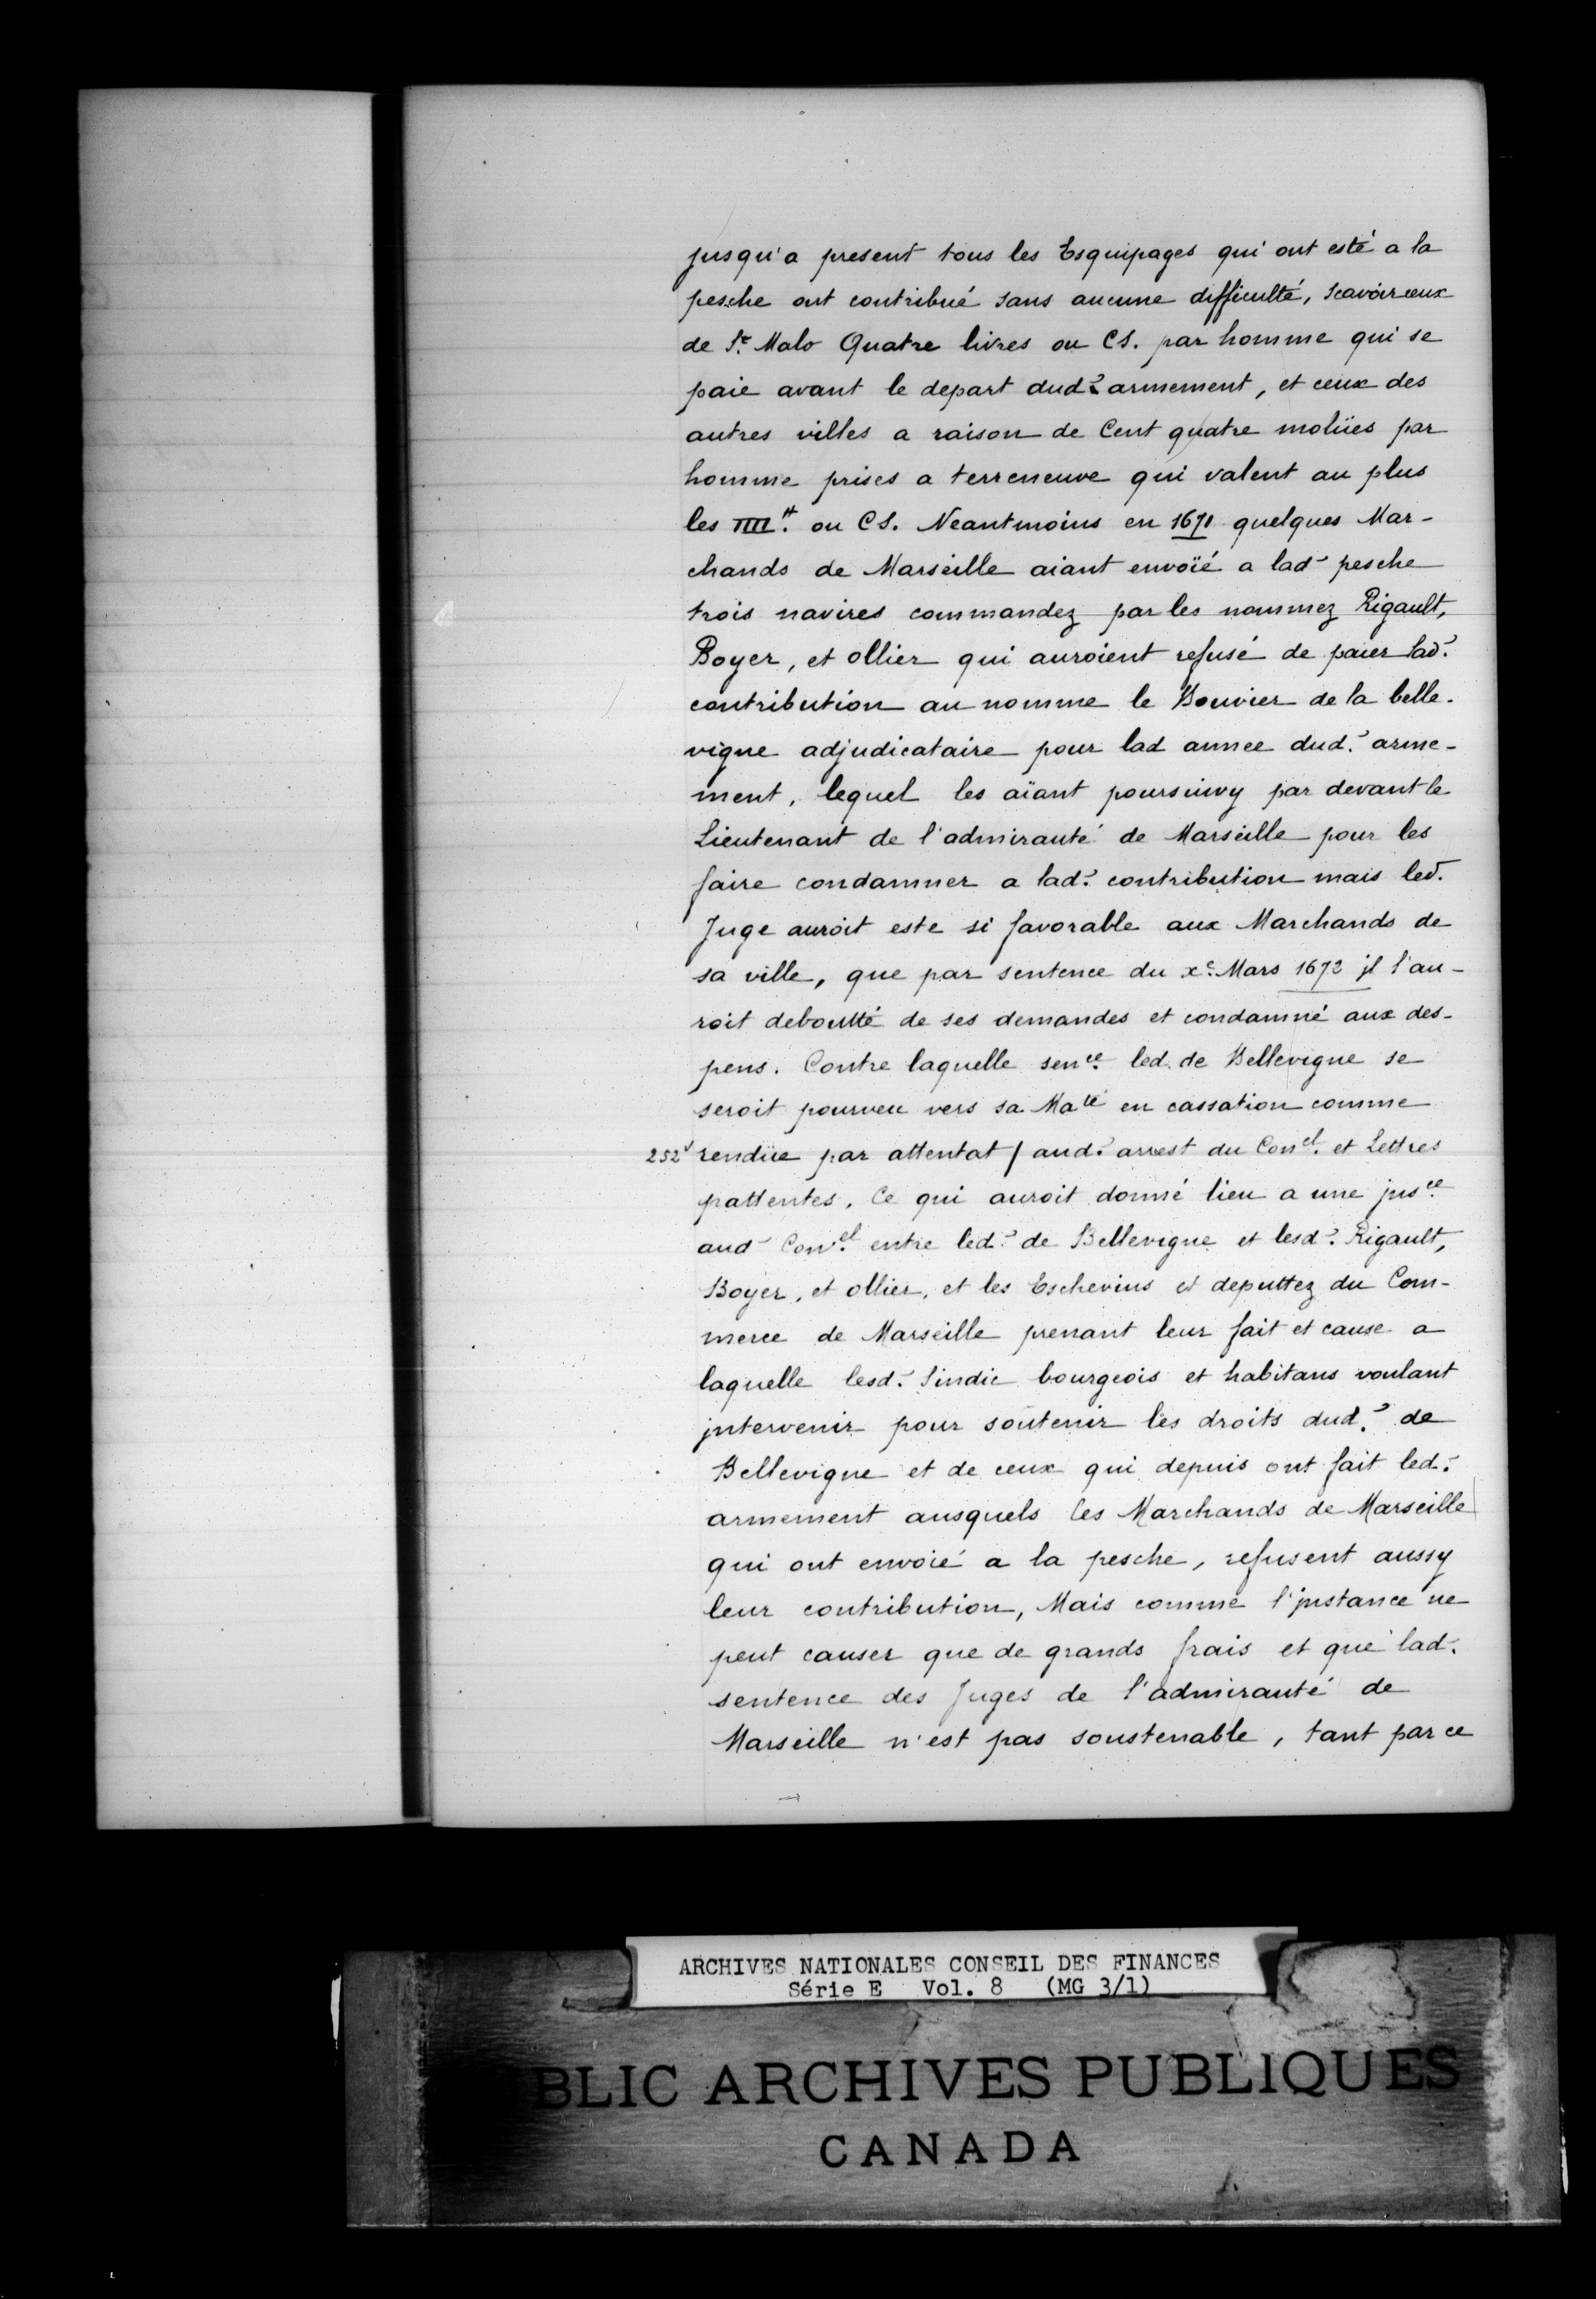 jusqu'a present tous les Esquipages qui ont esté a la
pesche ont contribué sans aucune difficulté, scavoir ceux
de St. Malo Quatre livres ou CS. par homme qui se
paie avant le depart dud. armement, et ceux des
autres villes a raison de Cent quatre molües par
homme prises a terreneuve qui valent au plus
les IIII tt. ou CS. Neantmoins en 1671 quelques Mar-
chands de Marseille aiant envoïé a lad. pesche
trois navires commandez par les nommez Rigault,
Boyer, et ollier qui auroient refusé de paier lad.
contribution au nomme le Bouvier de la belle-
vigne adjudicataire pour lad annee dud. arme-
ment, lequel les aïant poursuivy par devant le
Lieutenant de l'admirauté de Marseille pour les
faire condamner a lad. contribution mais led.
Juge auroit este si favorable aux Marchands de
sa ville, que par sentence du xe. Mars 1672 jl l'au-
roit deboutté de ses demandes et condamné aux des-
pens. Contre laquelle sence. led. de Bellevigne se
seroit pourveu vers sa Maté en cassation comme
252v rendüe par attentat / aud. arrest du Conel. et Lettres
pattentes. Ce qui auroit donné lieu a une jnsce.
aud. Conel. entre led. de Bellevigne et lesd. Rigault,
Boyer, et ollier, et les Eschevins et deputtez du Com-
merce de Marseille prenant leur fait et cause a
laquelle lesd. Sindic bourgeois et habitans voulant
jntervenir pour soutenir les droits dud. de
Bellevigne et de ceux qui depuis ont fait led.
armement ausquels les Marchands de Marseille
qui ont envoié a la pesche, refusent aussy
leur contribution, Mais comme l'jnstance ne
peut causer que de grands frais et que lad.
sentence des Juges de l'admirauté de
Marseille n'est pas soustenable, tant par ce
ARCHIVES NATIONALES CONSEIL DES FINANCES
Série E Vol. 8 (MG 3/1)
BLIC ARCHIVES PUBLIQUES
CANADA